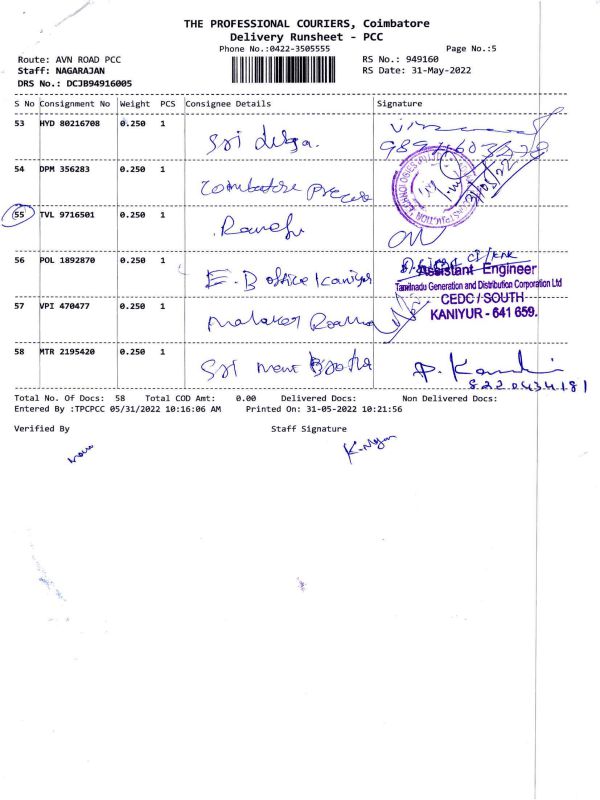 THE PROFESSIONAL COURIERS, Coimbatore
Delivery Runsheet - PCC
Phone No.:0422-3505555
Page No.:5
Route: AVN ROAD PCC
RS No.: 949160
Staff: NAGARAJAN
RS Date: 31-May-2022
DRS No.: DCJB94916005
S No Consignment No Weight PCS Consignee Details Signature
53 HYD 80216708 0.250 1
Sri durga.
54 DPM 356283 0.250 1
Coimbatore
31/05/22
55 TVL 9716501 0.250 1
56 POL 1892870 0.250 1
E.B office Kaniyur
Assistant Engineer
Tamilnadu Generation and Distribution Corporation Ltd
CEDC / SOUTH
KANIYUR - 641 659.
57 VPI 470477 0.250 1
58 MTR 2195420 0.250 1
Sri
8220434181
Total No. Of Docs: 58 Total COD Amt: 0.00 Delivered Docs: Non Delivered Docs:
Entered By :TPCPCC 05/31/2022 10:16:06 AM Printed On: 31-05-2022 10:21:56
Verified By Staff Signature